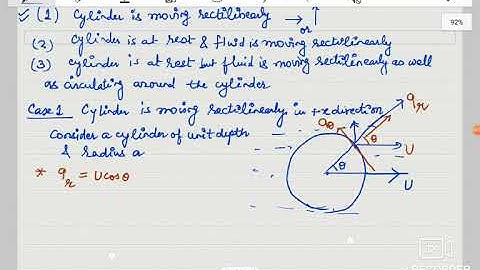 (1) Cylinder is moving rectilinearly → or ↑
92%
(2) Cylinder is at rest & fluid is moving rectilinearly
(3) Cylinder is at rest but fluid is moving rectilinearly as well
as circulating around the cylinder
Case 1 Cylinder is moving rectilinearly in +x direction
Consider a cylinder of unit depth
& radius a
* qᵣ = U cos θ
qθ
qᵣ
θ
U
θ
U